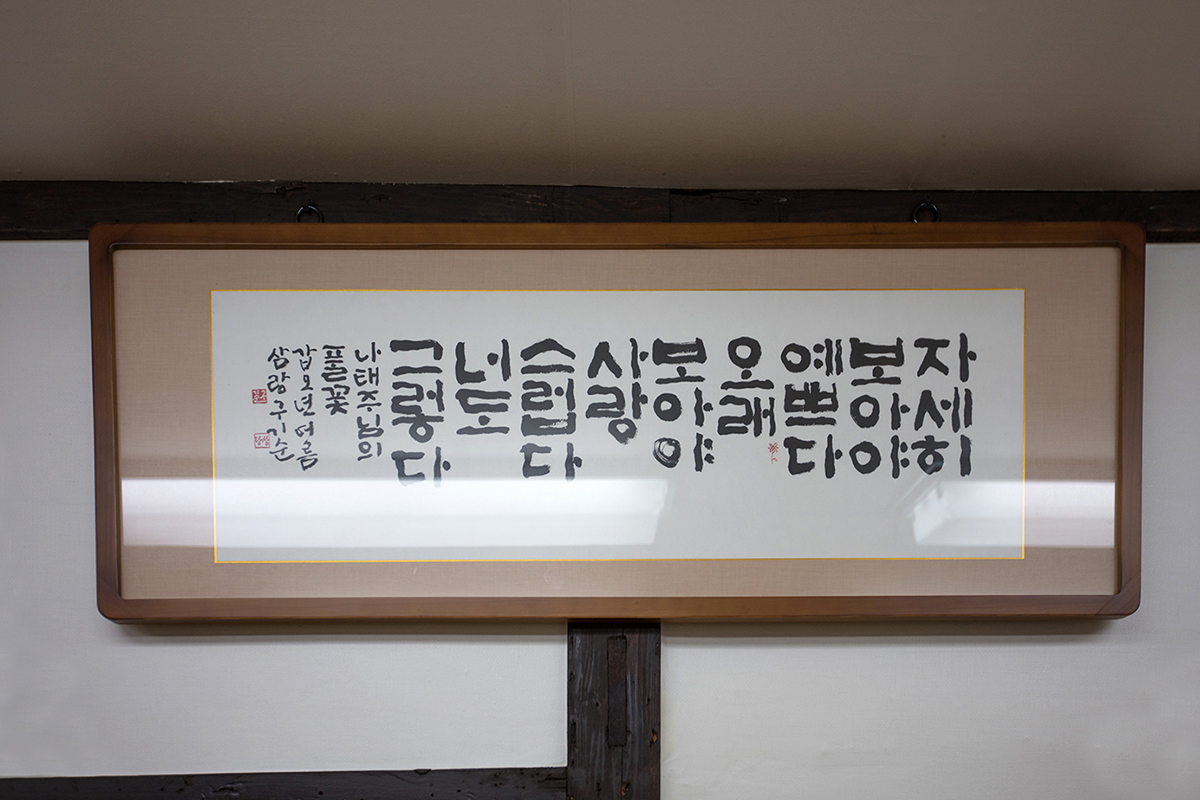 자세히
보아야
예쁘다
오래
보아야
사랑
스럽다
너도
그렇다
나태주님의
풀꽃
갑오년 여름
삼랑 구기순